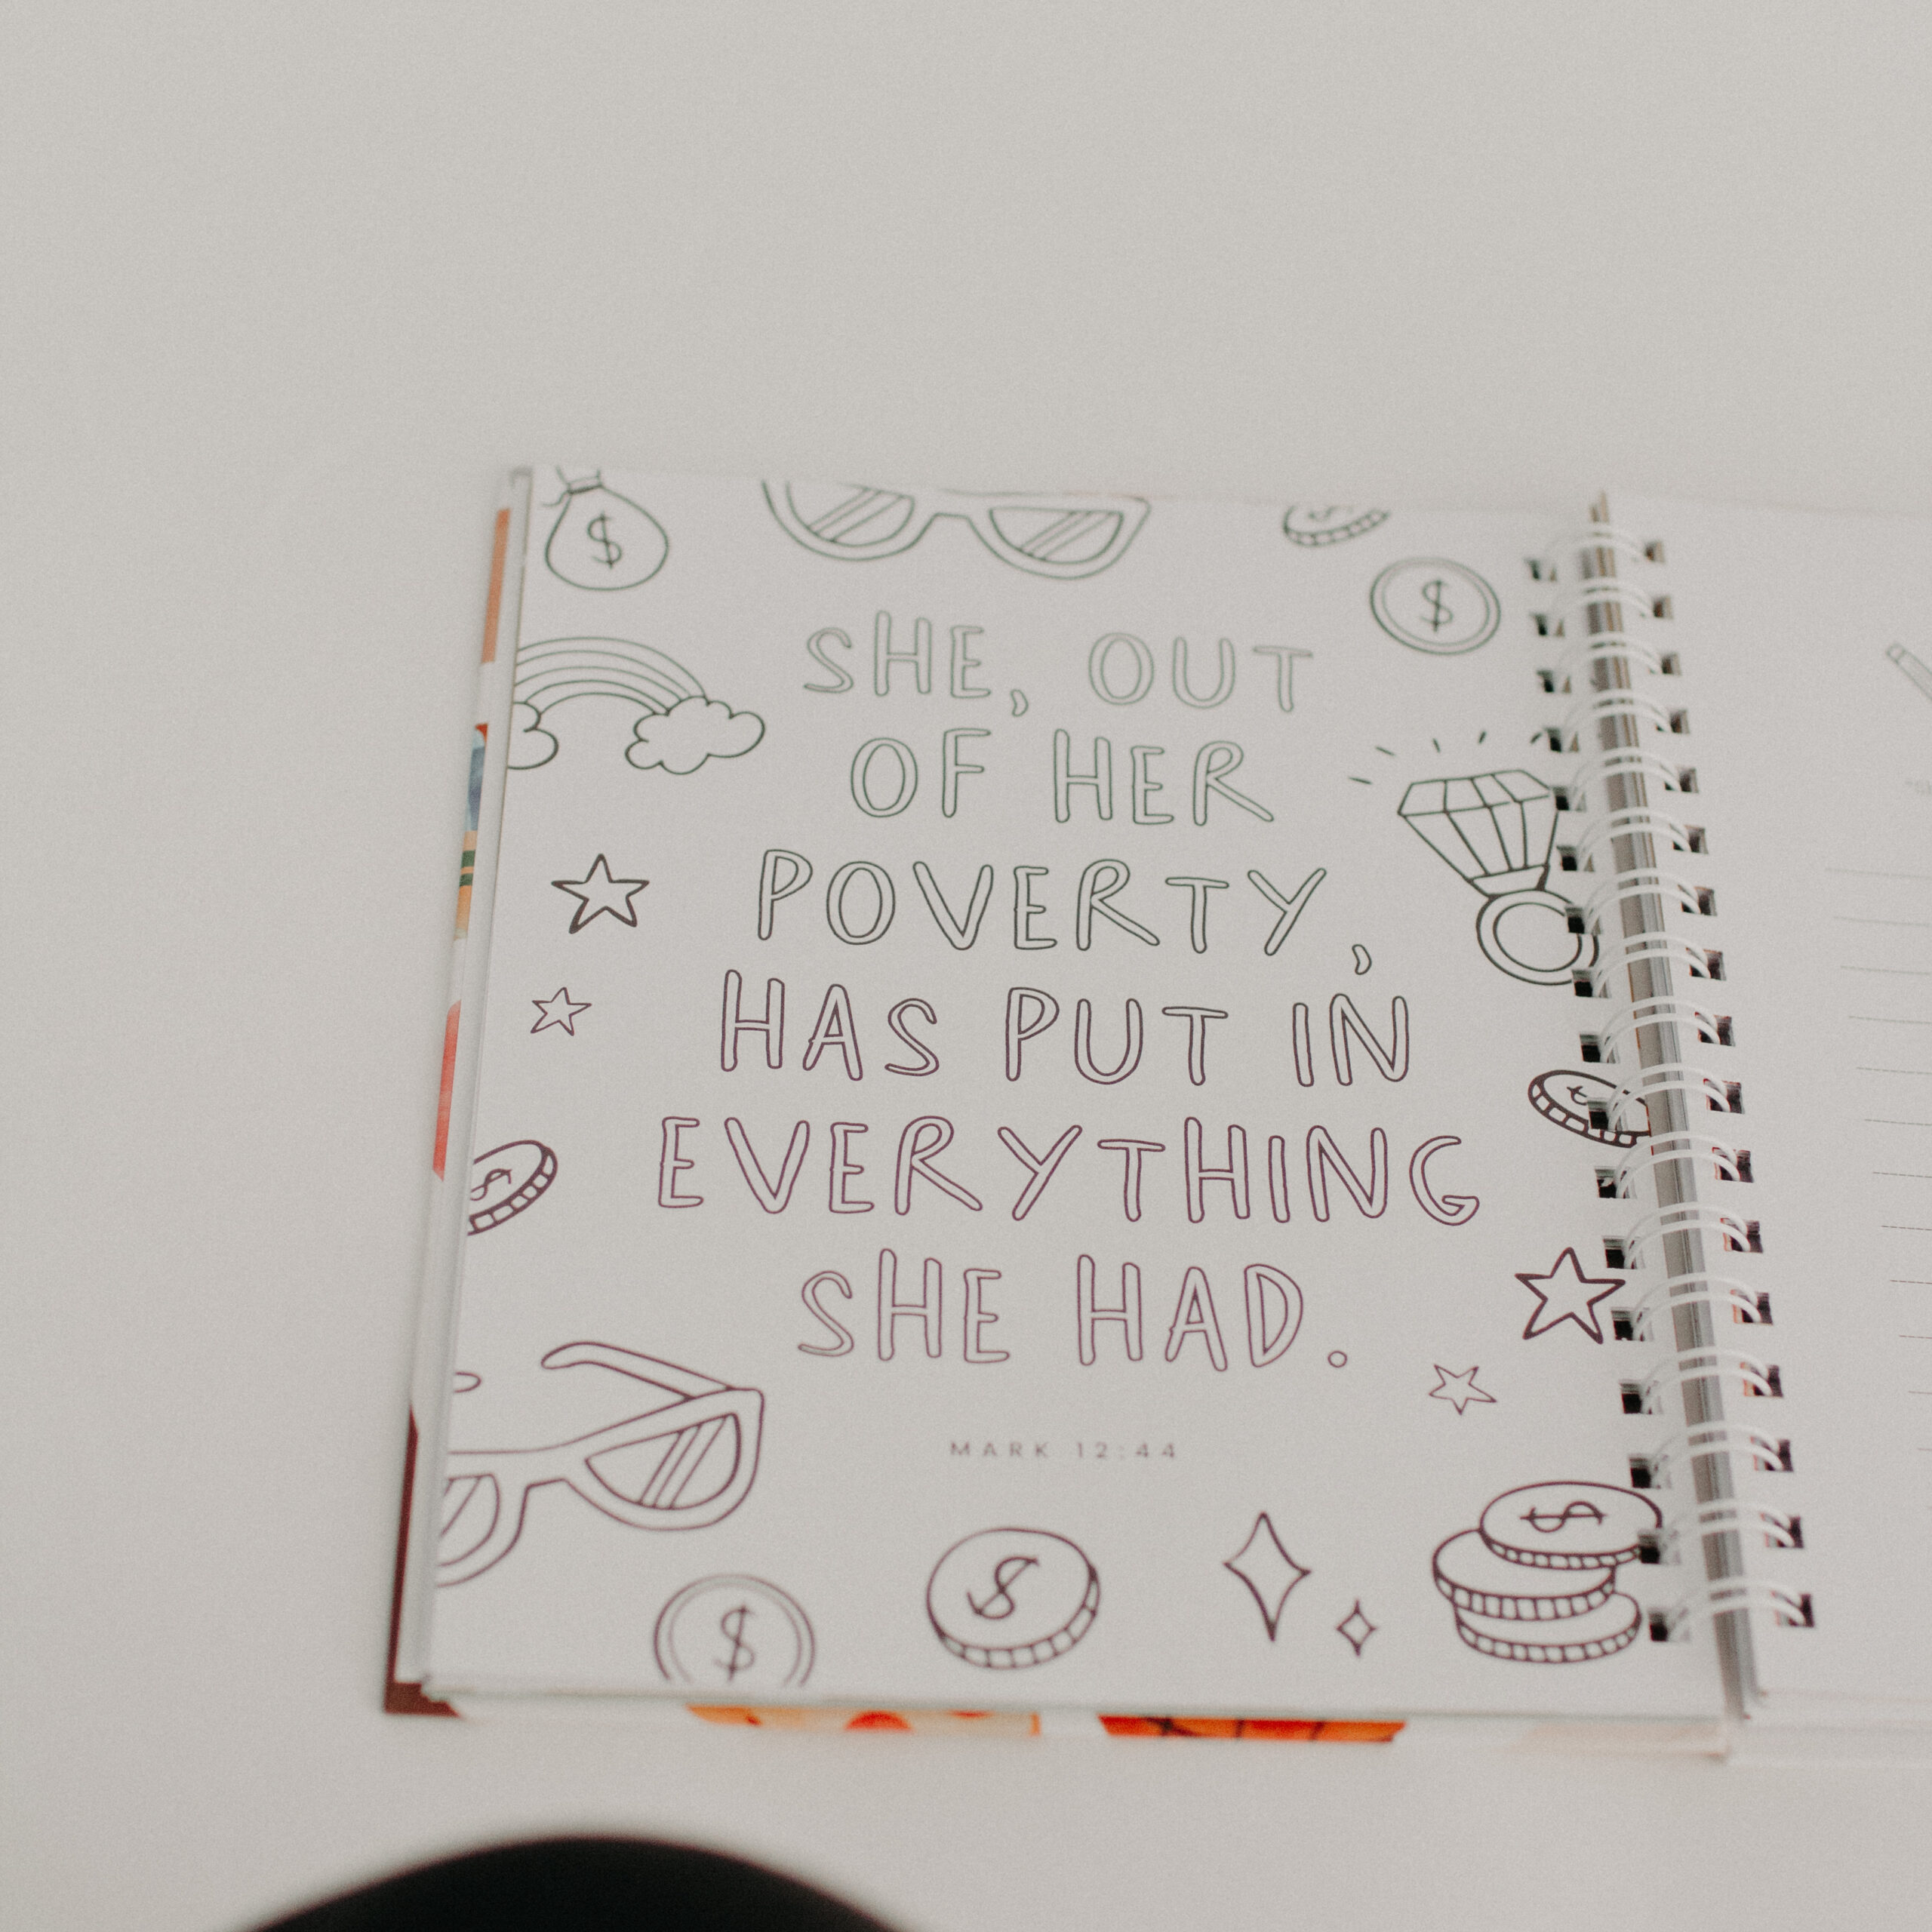 SHE, OUT
OF HER
POVERTY,
HAS PUT IN
EVERYTHING
SHE HAD.
MARK 12:44